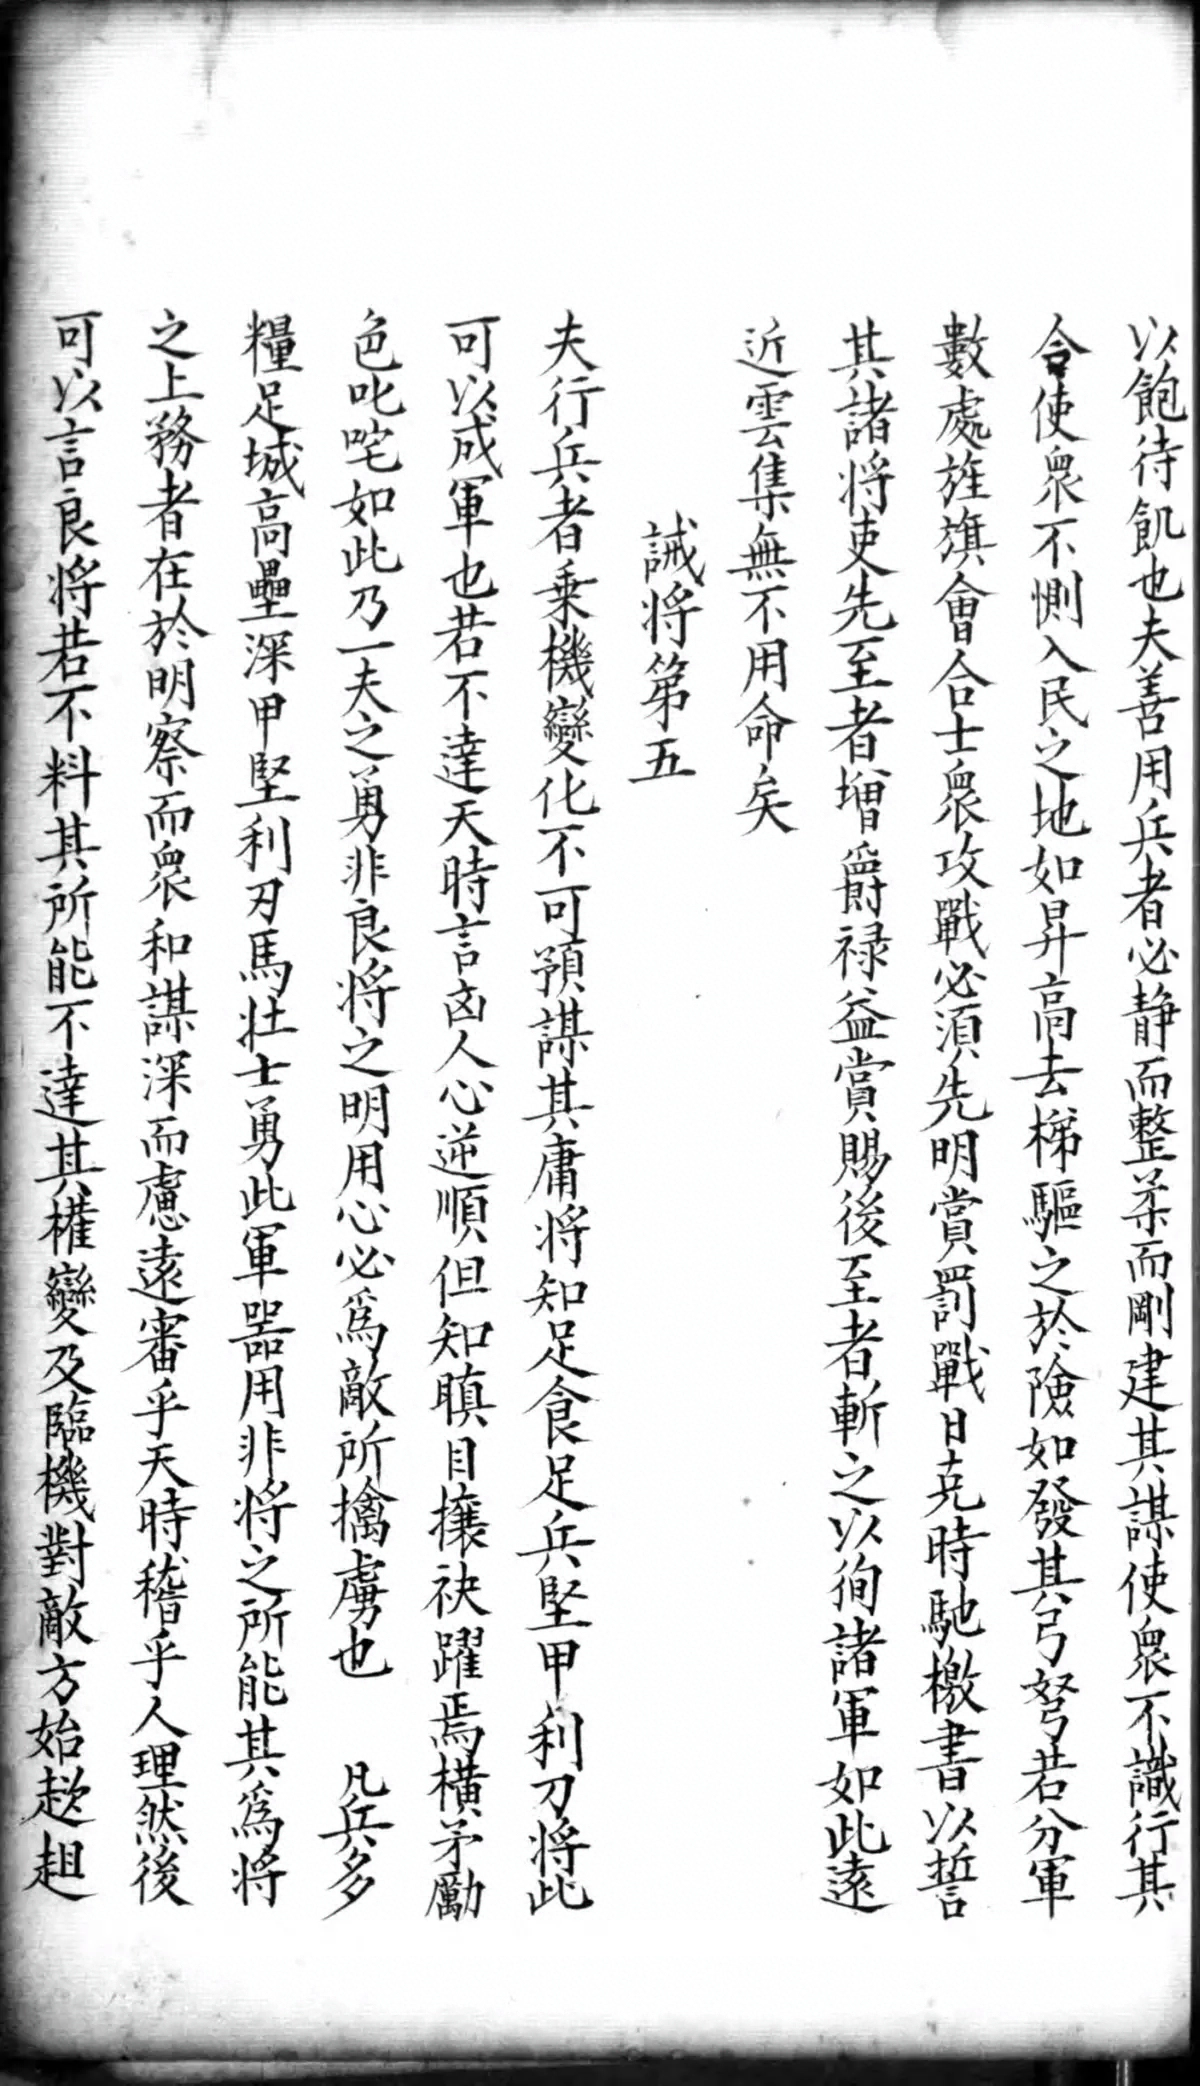 以飽待飢也夫善用兵者必静而整柔而剛建其謀使衆不識行其
令使衆不惻入民之地如昇高去梯驅之於險如發其弓弩若分軍
數處旌旗會合士衆攻戰必須先明賞罰戰日克時馳檄書以誓
其諸将吏先至者增爵禄益賞賜後至者斬之以徇諸軍如此遠
近雲集無不用命矣
誡将第五
夫行兵者乗機變化不可預謀其庸将知足食足兵堅甲利刀将此
可以成軍也若不達天時言凶人心逆順但知瞋目攘袂躍焉横矛勵
色叱咤如此乃一夫之勇非良将之明用心必爲敵所擒虜也 凡兵多
糧足城高壘深甲堅利刃馬壮士勇此軍器用非将之所能其爲将
之上務者在於明察而衆和謀深而慮遠審乎天時稽乎人理然後
可以言良将若不料其所能不達其權變及臨機對敵方始趑趄